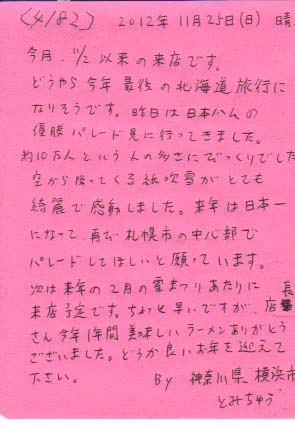 〈4182〉 2012年11月25日(日) 晴
今月、11/2以来の来店です。
どうやら今年最後の北海道旅行に
なりそうです。昨日は日本ハムの
優勝パレード見に行ってきました。
約10万人という人の多さにびっくりでした
空から降ってくる紙吹雪がとても
綺麗で感動しました。来年は日本一
になって、再び札幌市の中心部で
パレードしてほしいと願っています。
次は来年の2月の雪まつりあたりに
来店予定です。ちょっと早いですが、店長
さん今年1年間美味しいラーメンありがとう
ございました。どうか良いお年を迎えて
下さい。 By 神奈川県横浜市
とみちゅう